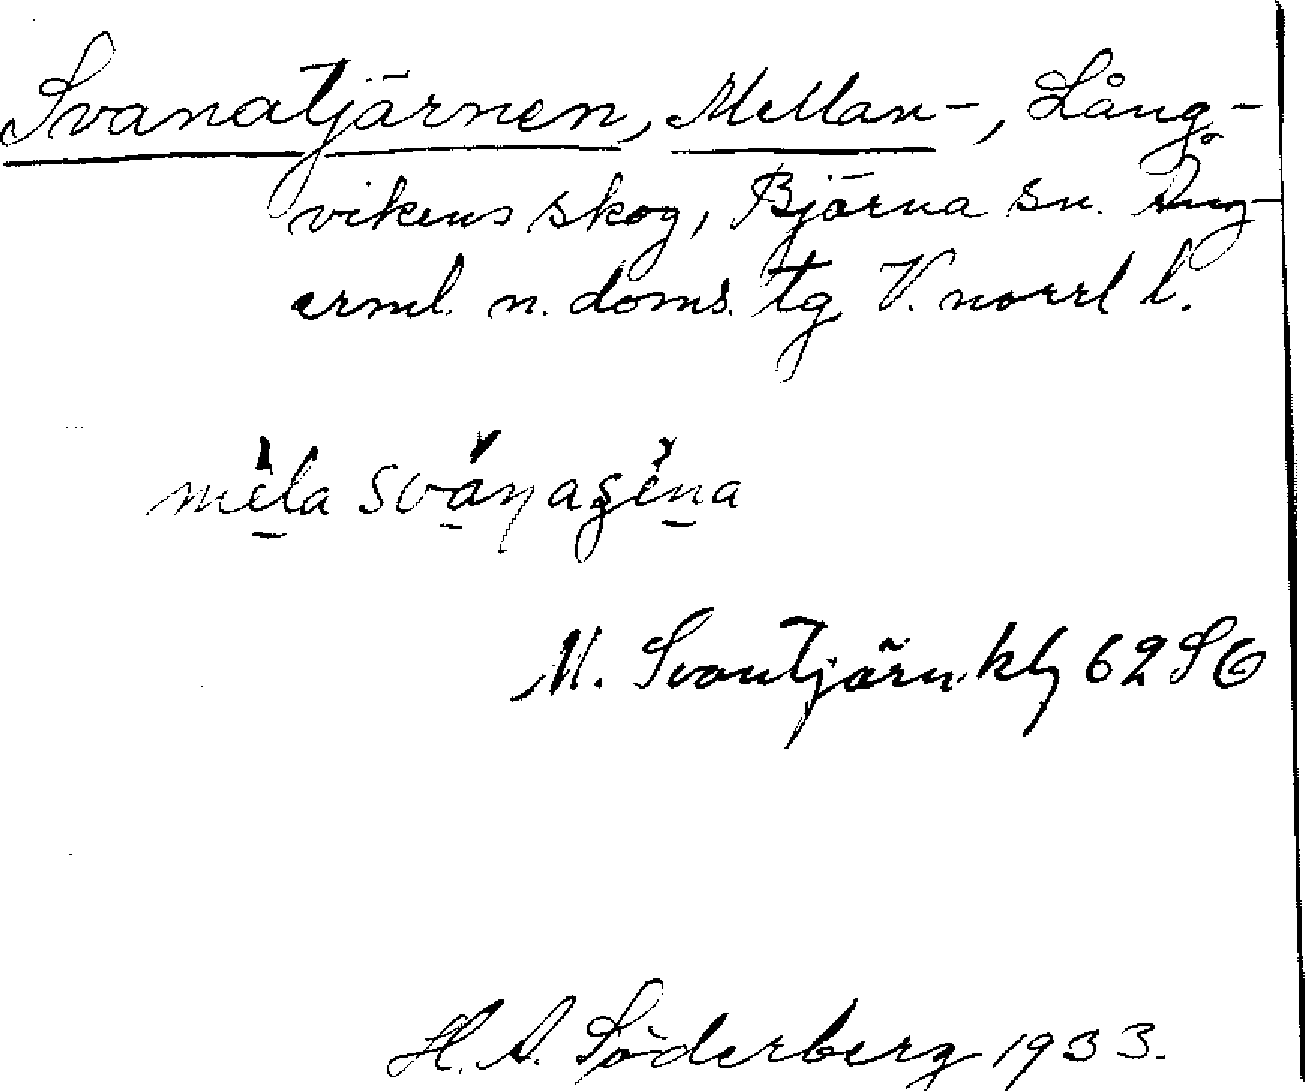 Svanatjärnen, Mellan-, Lång-
vikens skog, Björna sn. Ång-
erml. n. doms. tg V. norrl l.
mèla sváŋaʂèna
M. Svantjärn. kbl 62 SO
H. A. Söderberg 1933.